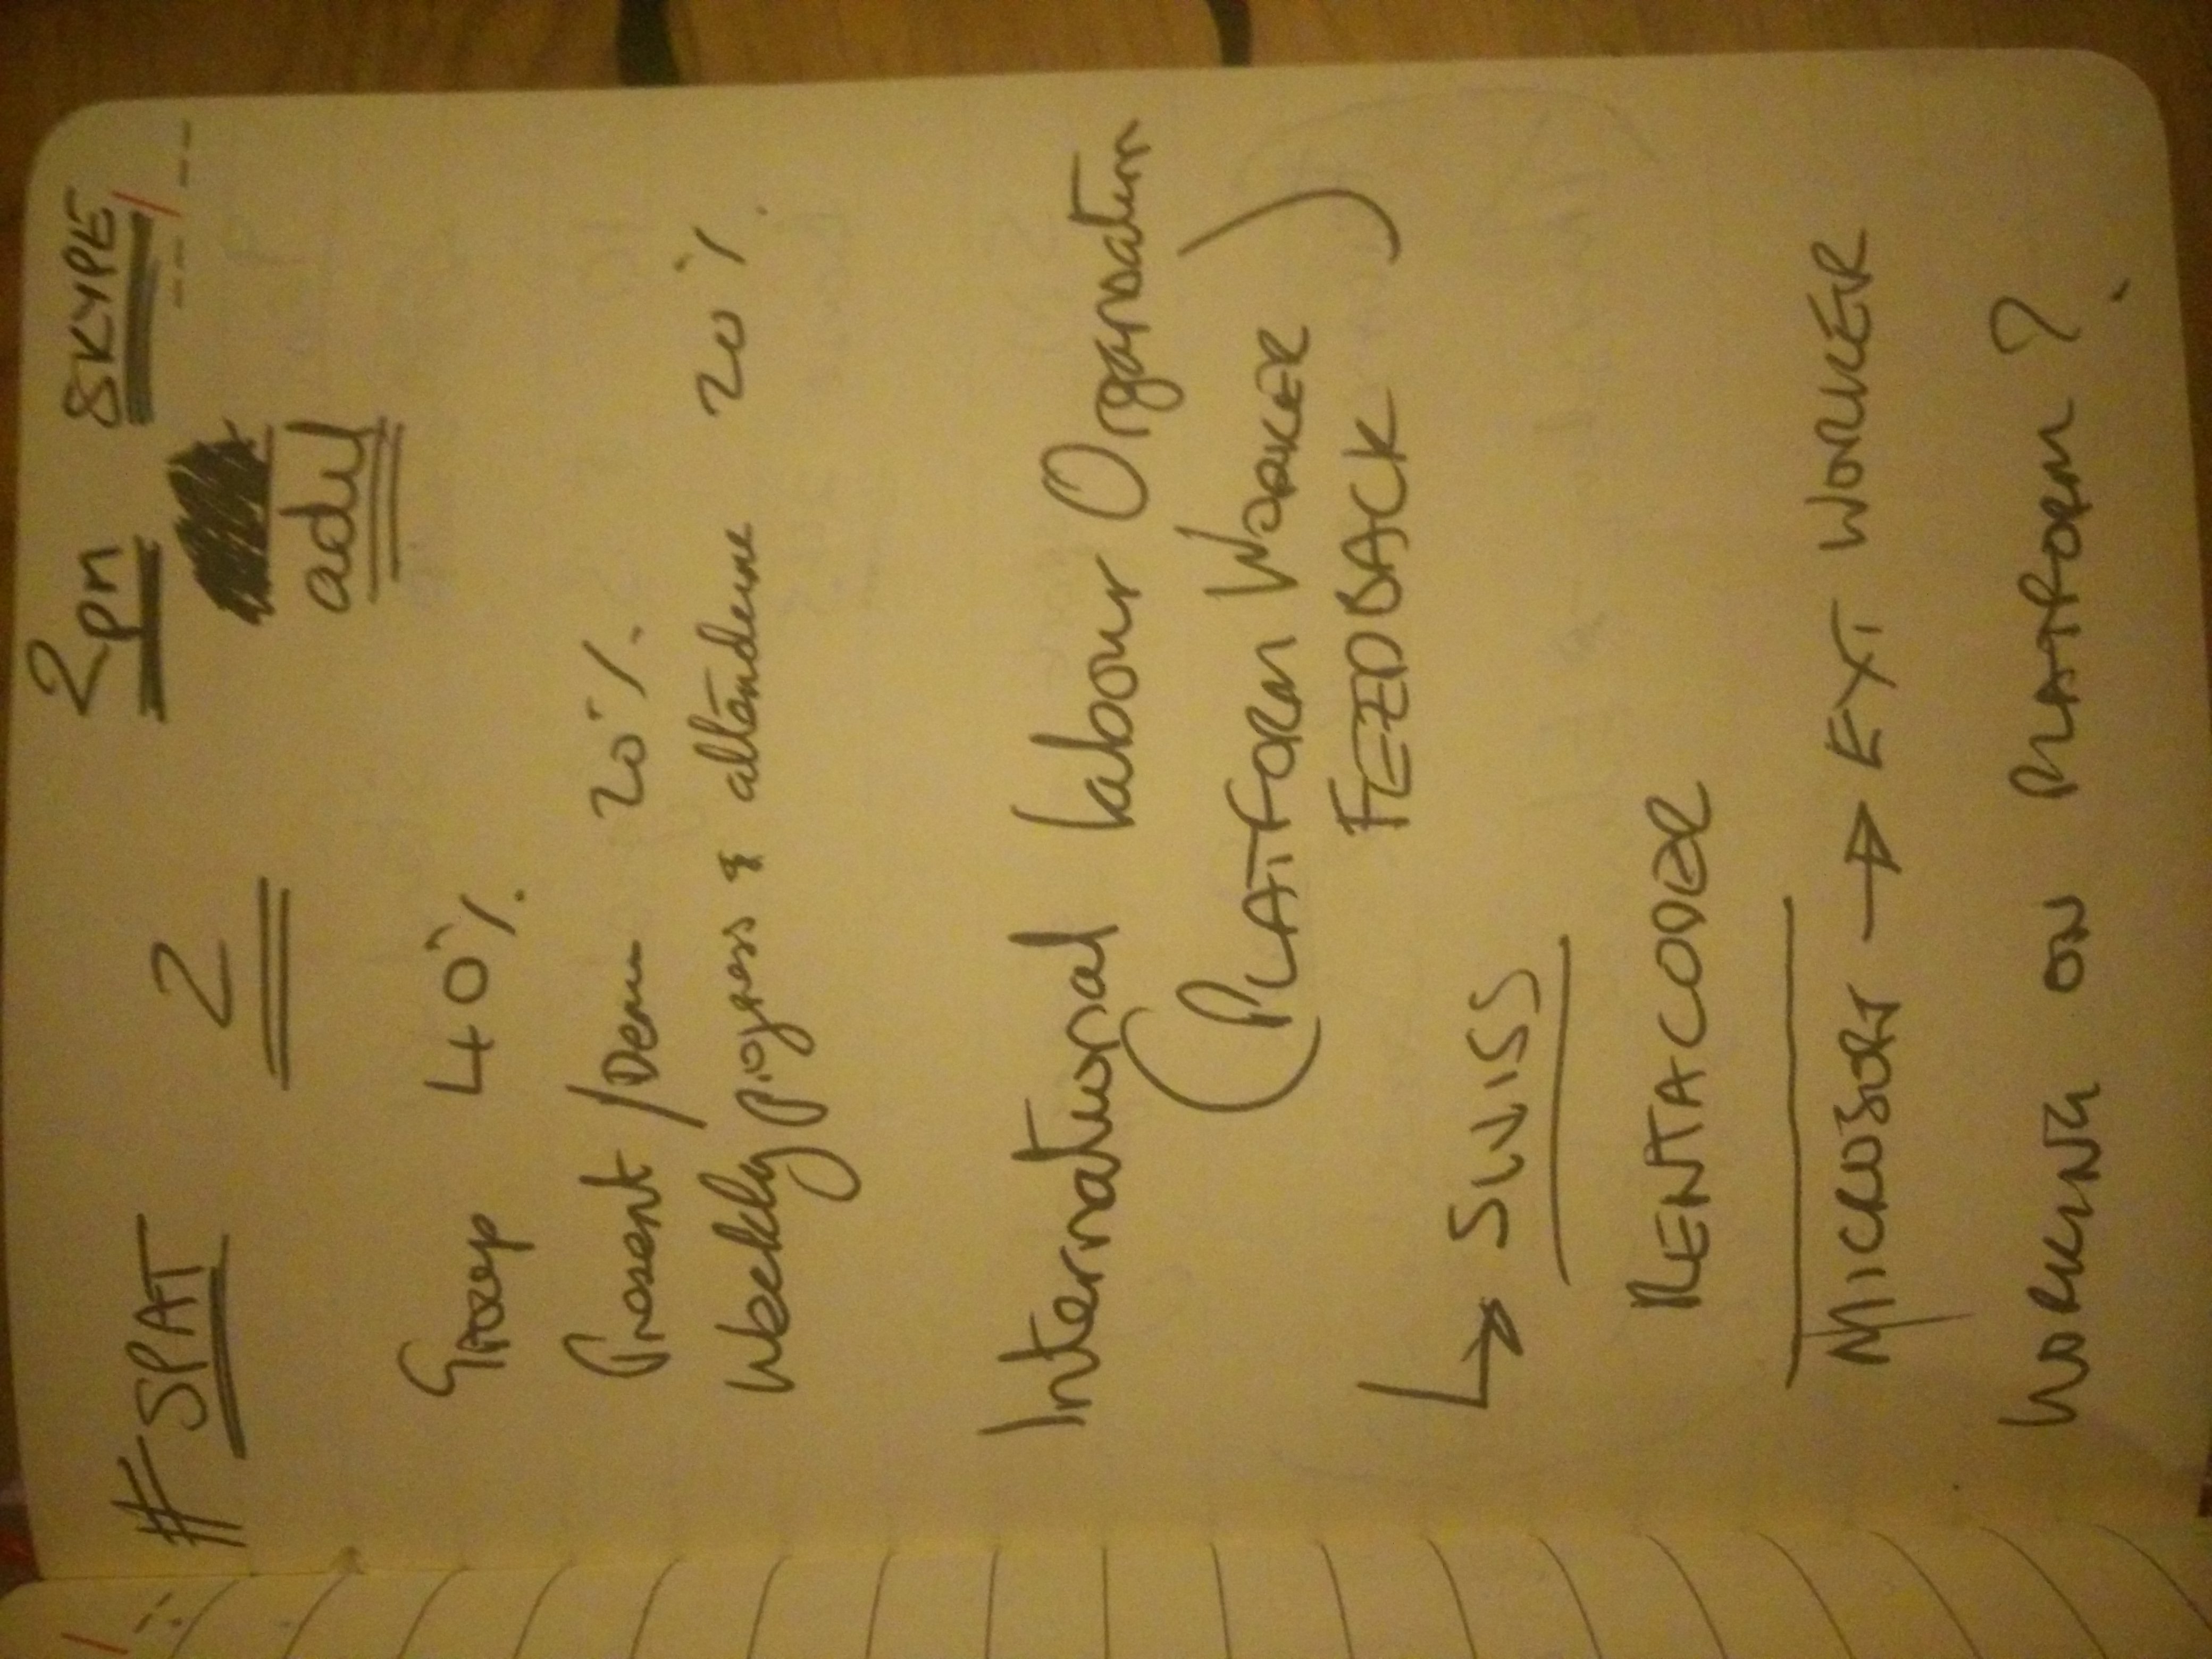 2pm SKYPE
# SPAT 2
Group 40%
Present / Demo 20%
Weekly progress & attendence 20%
International Labour Organisation
(PLATFORM WORKER
FEEDBACK)
↳ SWISS
RENTACODER
MICROSOFT → EXT. WORKER
WORKING ON PLATFORM?